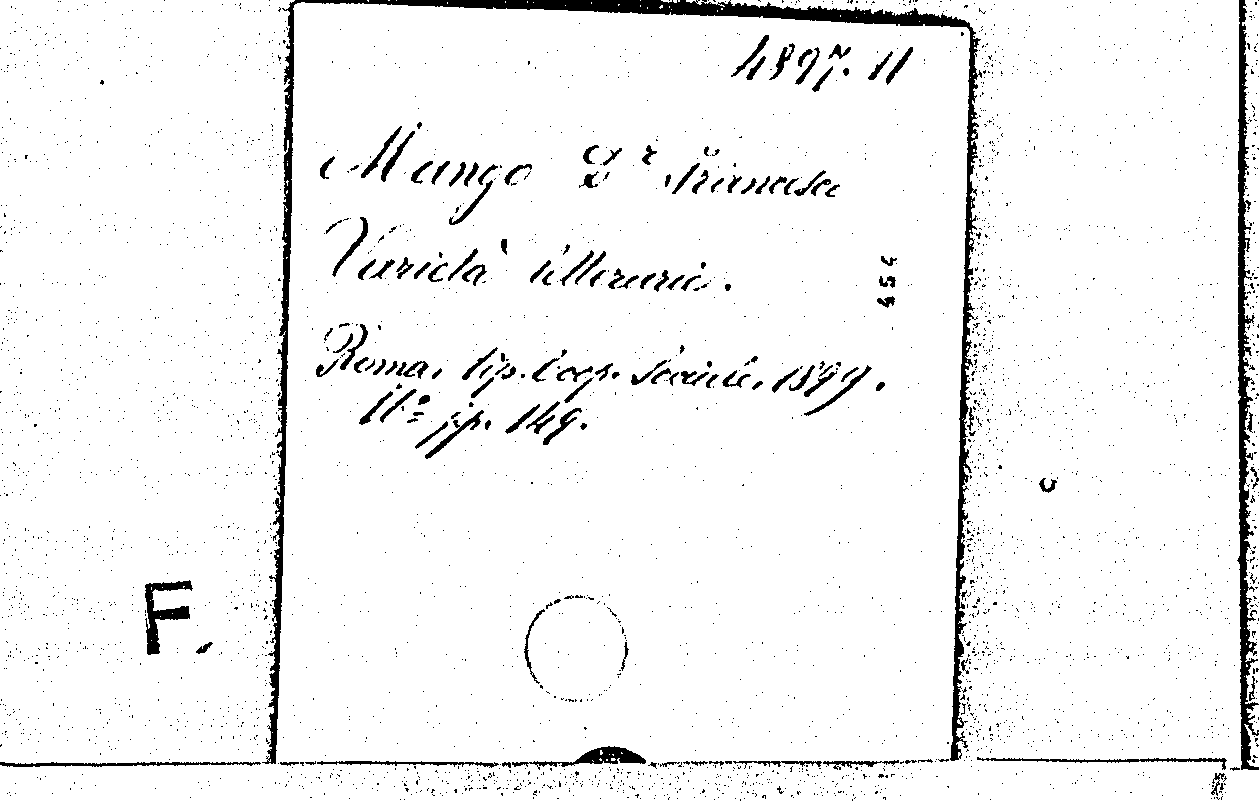 4897. 11
Mango Dr Francesco
Varietà letterarie.
454
Roma, tip. Coop. Sociale, 1899.
pp. 149.
F.